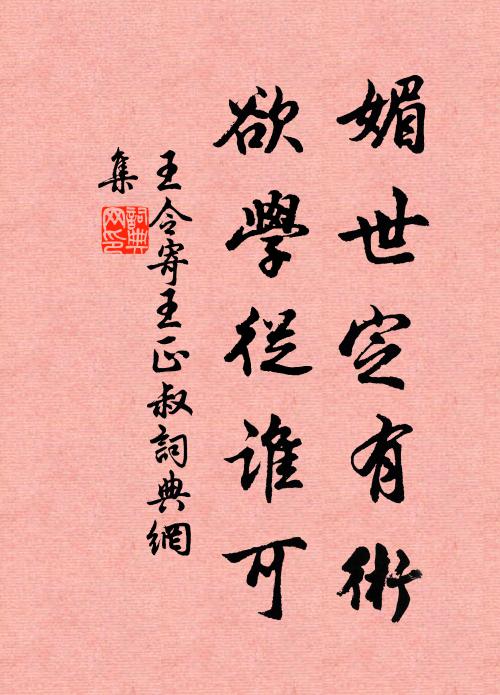 媚世定有術
欲學從誰可
王令寄王正叔詞典網
集
詞典
网印